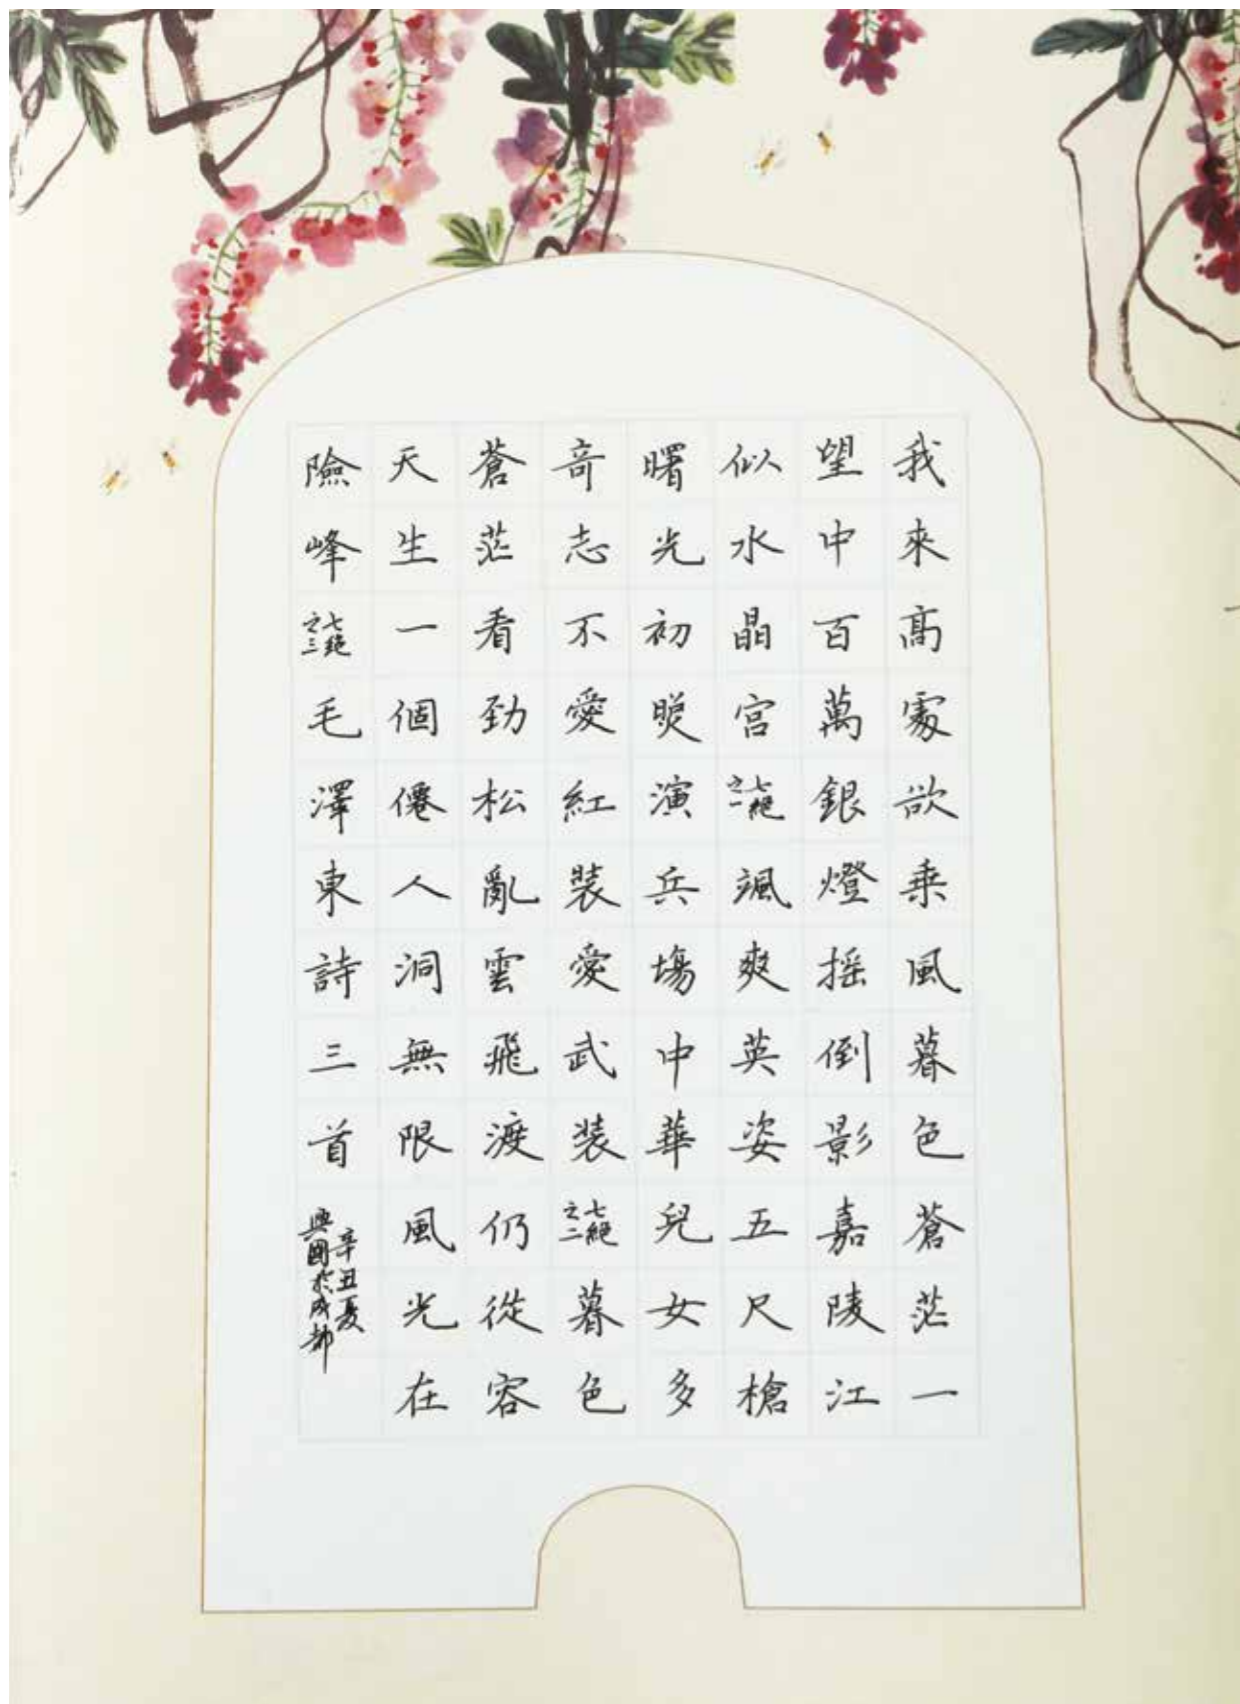 我來高處欲乘風暮色蒼茫一
望中百萬銀燈摇倒影嘉陵江
似水晶宮七絕之一颯爽英姿五尺槍
曙光初照演兵場中華兒女多
奇志不愛紅裝愛武裝七絕之二暮色
蒼茫看勁松亂雲飛渡仍從容
天生一個僊人洞無限風光在
險峰七絕之三毛澤東詩三首
辛丑夏
興國於成都